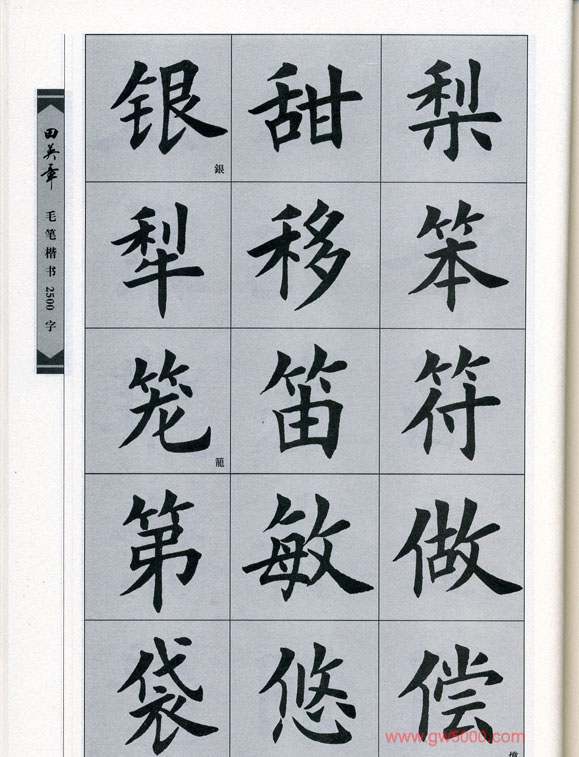 田英章 毛笔楷书 2500 字
银 甜 梨
銀
犁 移 笨
笼 笛 符
籠
第 敏 做
袋 悠 偿
償
www.gw5000.com